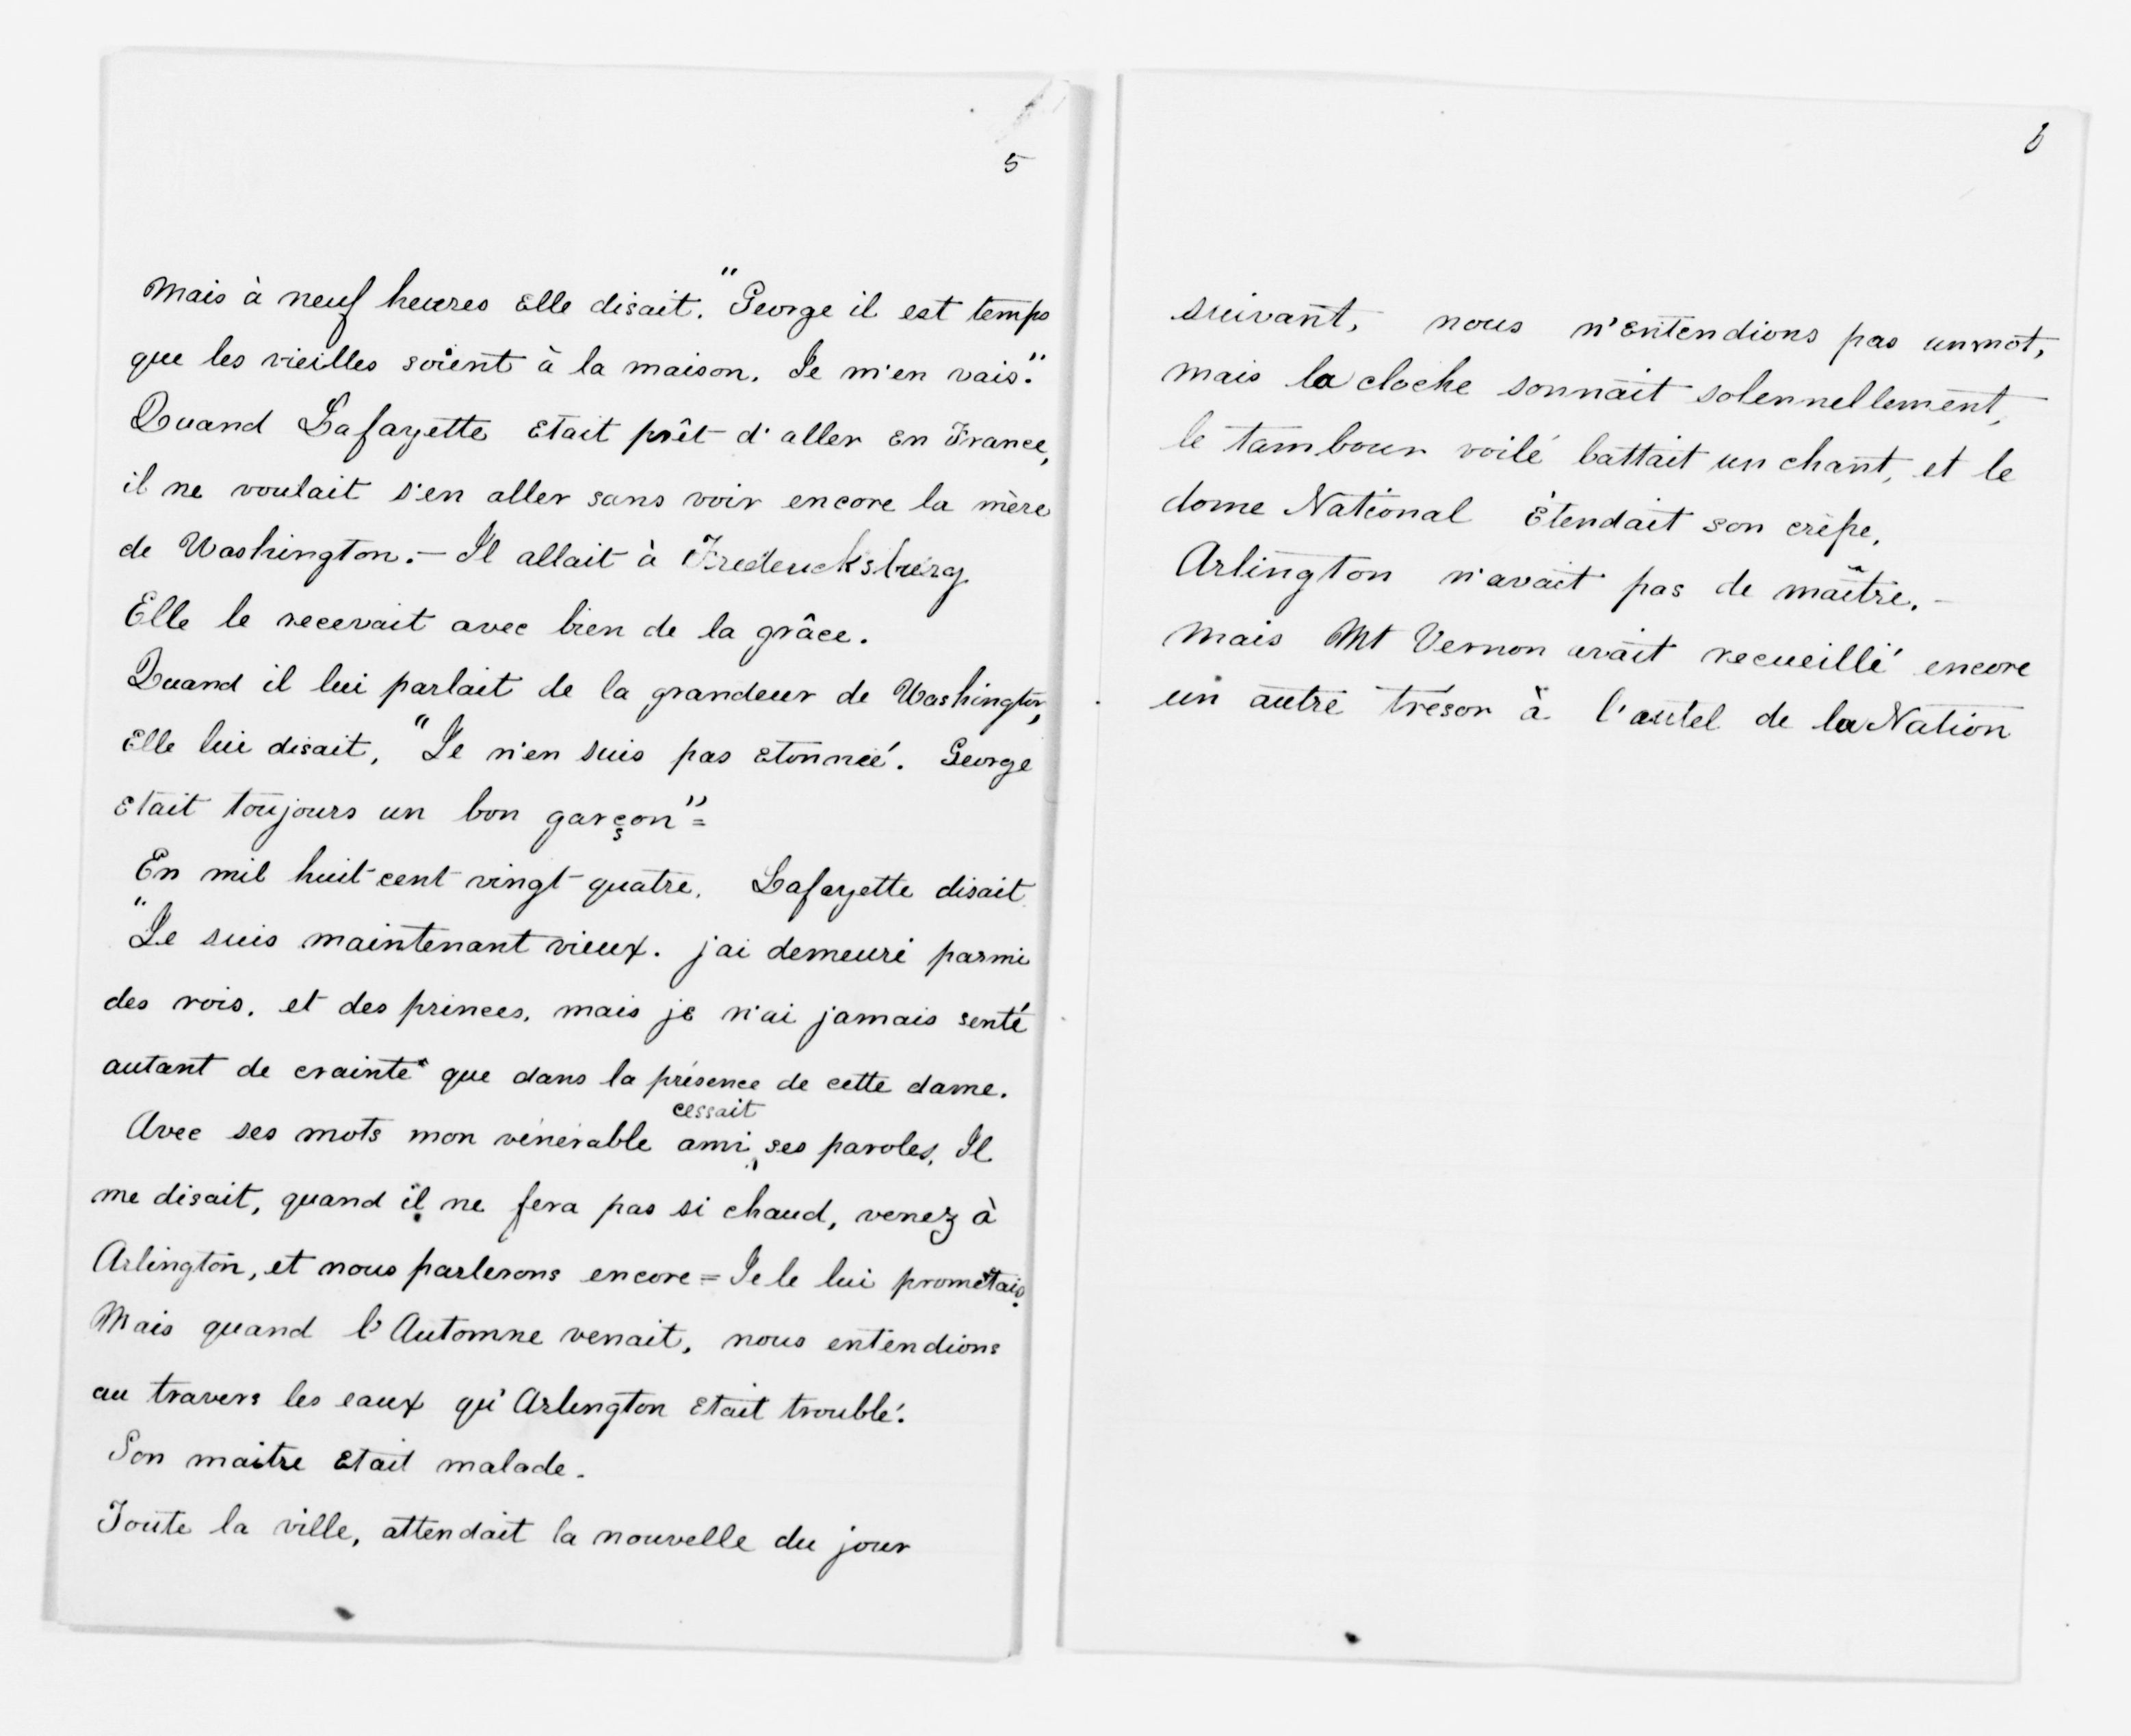 5
Mais à neuf heures elle disait. "George il est temps
que les vieilles soient à la maison. Je m'en vais."
Quand Lafayette etait prêt d'aller en France,
il ne voulait s'en aller sans voir encore la mère
de Washington.— Il allait à Fredericksburg
Elle le recevait avec bien de la grâce.
Quand il lui parlait de la grandeur de Washington,
elle lui disait, "Je n'en suis pas etonnée. George
etait toujours un bon garçon"=
En mil huit cent vingt quatre. Lafayette disait
"Je suis maintenant vieux. j'ai demeuré parmi
des rois. et des princes. mais je n'ai jamais senté
autant de crainte" que dans la présence de cette dame.
cessait
Avec ses mots mon vénérable ami ses paroles. Il
me disait, quand il ne fera pas si chaud, venez à
Arlington, et nous parlerons encore = Je le lui prometais.
Mais quand l'Automne venait, nous entendions
au travers les eaux qu'Arlington etait troublé.
Son maitre etait malade.
Toute la ville, attendait la nouvelle du jour
6
suivant, nous n'entendions pas un mot,
mais la cloche sonnait solennellement,
le tambour voilé battait un chant, et le
dome National étendait son crêpe.
Arlington n'avait pas de maître.—
Mais Mt Vernon avait recueillé encore
un autre trésor à l'autel de la Nation